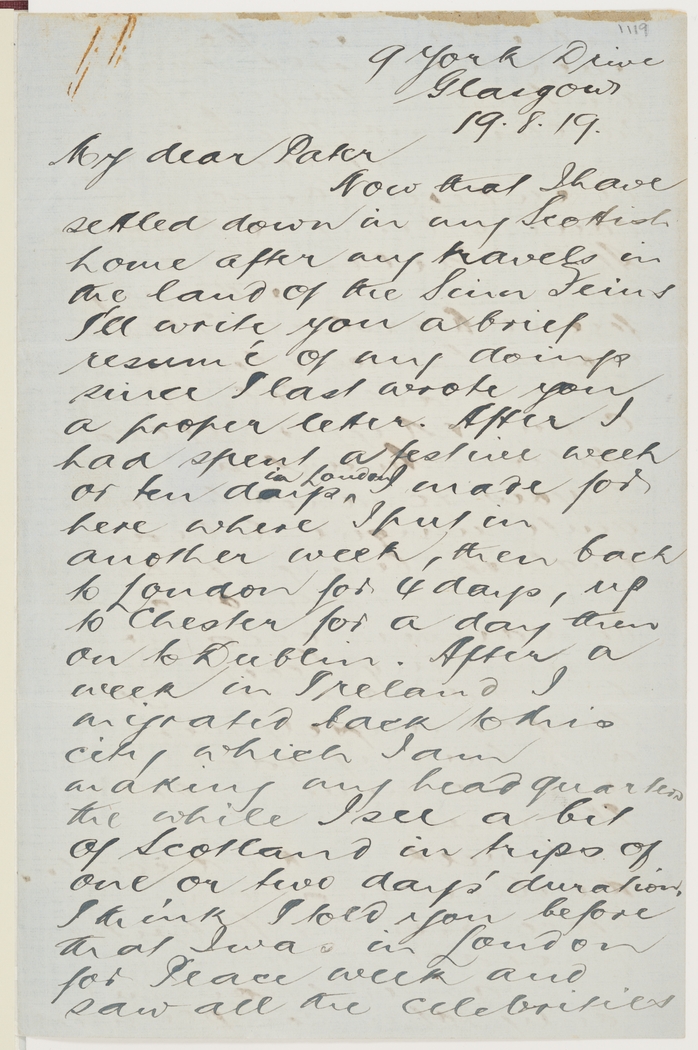 1119
9 York Drive
Glasgow
19.8.19.
My dear Pater
Now that I have
settled down in my Scottish
home after my travels in
the land of the Sinn Feins
I'll write you a brief
resumé of my doings
since I last wrote you
a proper letter. After I
had spent a festive week
in London
or ten days ^ I made for
here where I put in
another week, then back
to London for 4 days, up
to Chester for a day then
on to Dublin. After a
week in Ireland I
migrated back to this
city which I am
making my headquarters
the while I see a bit
of Scotland in trips of
one or two days' duration.
I think I told you before
that I was in London
for Peace week and
saw all the celebrities